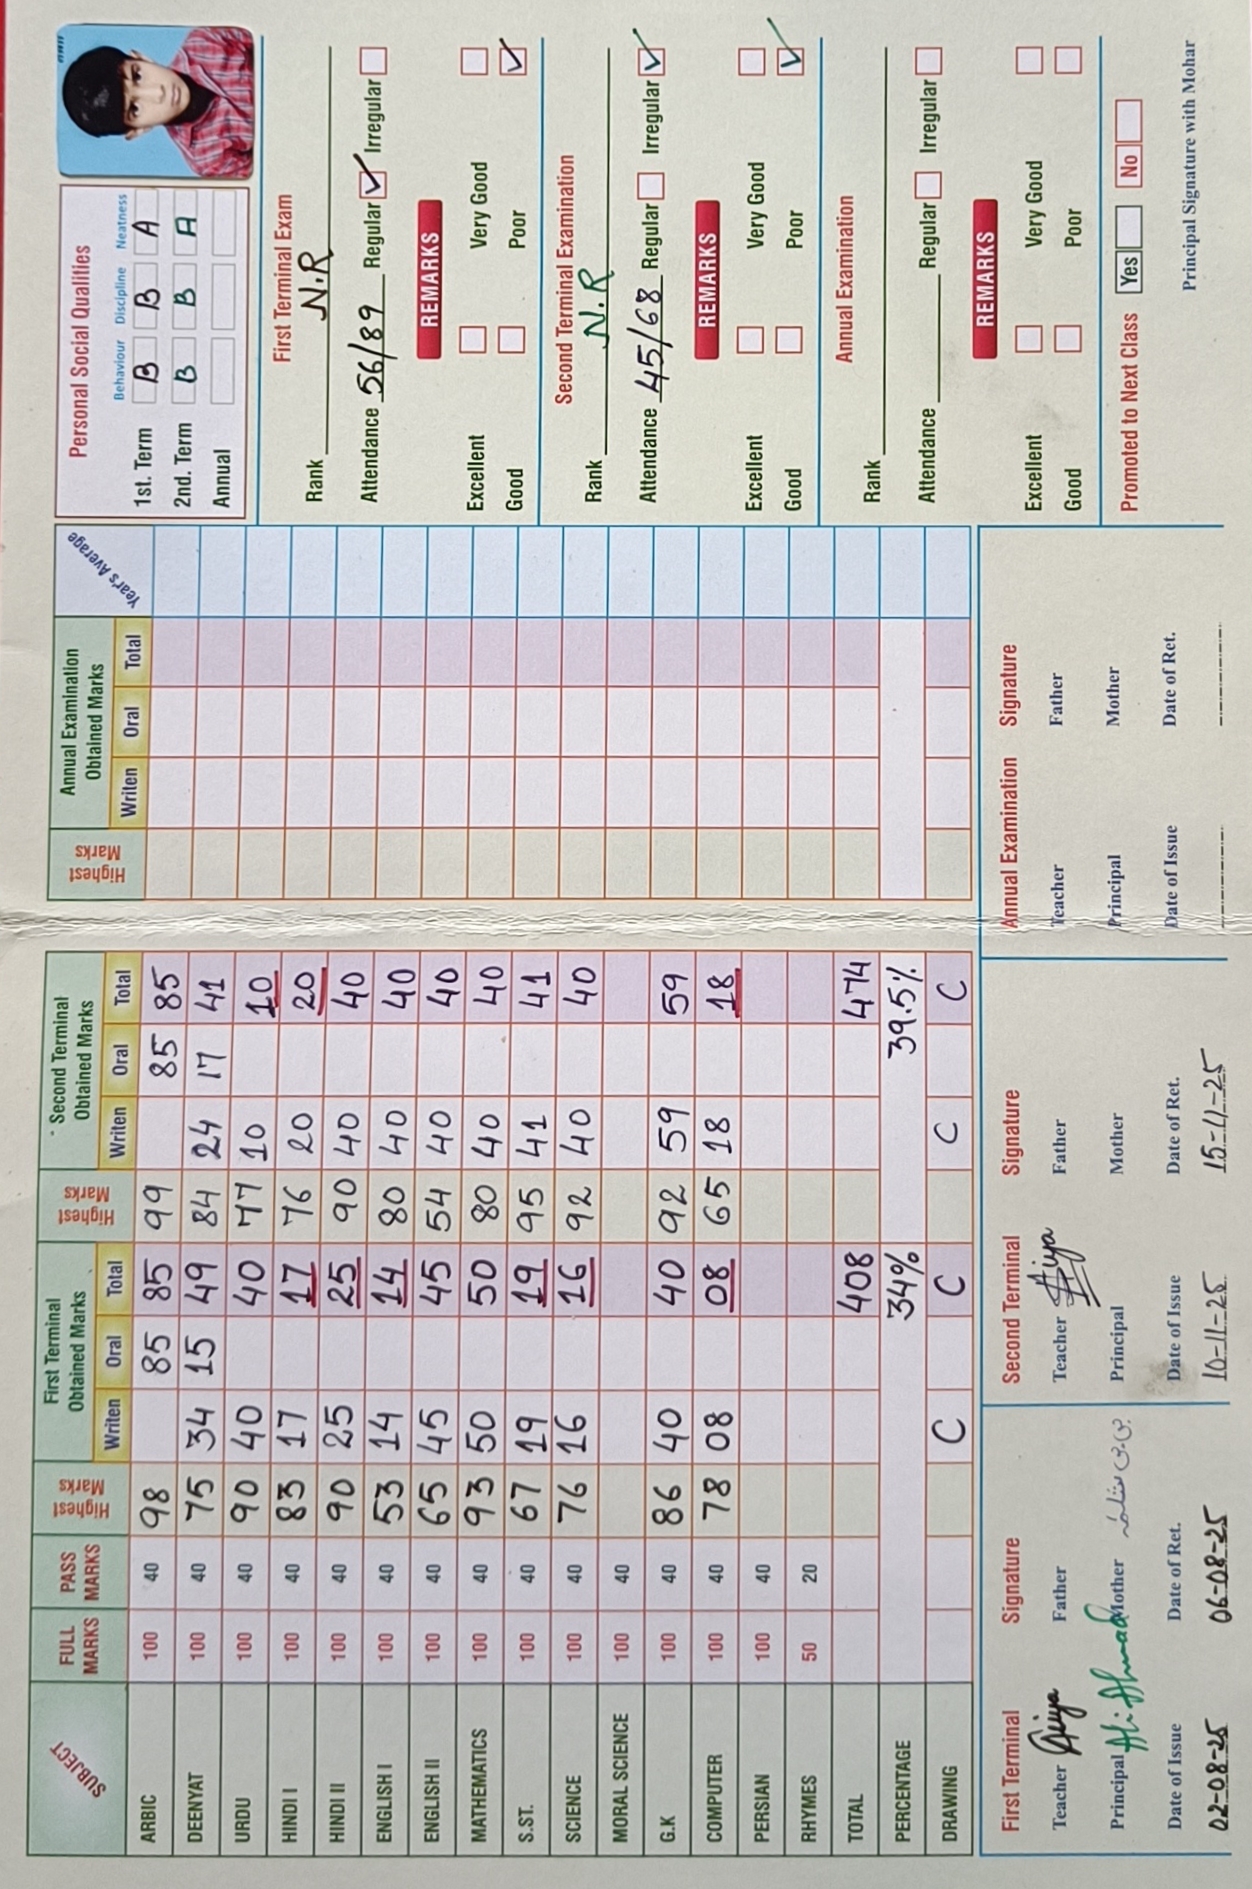 SUBJECT FULL MARKS PASS MARKS Highest Marks First Terminal Obtained Marks Writen Oral Total Highest Marks Second Terminal Obtained Marks Writen Oral Total Highest Marks Annual Examination Obtained Marks Writen Oral Total Year's Average
ARBIC 100 40 98 85 85 99 85 85
DEENYAT 100 40 75 34 15 49 84 24 17 41
URDU 100 40 90 40 40 77 10 10
HINDI I 100 40 83 17 17 76 20 20
HINDI II 100 40 90 25 25 90 40 40
ENGLISH I 100 40 53 14 14 80 40 40
ENGLISH II 100 40 65 45 45 54 40 40
MATHEMATICS 100 40 93 50 50 80 40 40
S.ST. 100 40 67 19 19 95 41 41
SCIENCE 100 40 76 16 16 92 40 40
MORAL SCIENCE 100 40
G.K 100 40 86 40 40 92 59 59
COMPUTER 100 40 78 08 08 65 18 18
PERSIAN 100 40
RHYMES 50 20
TOTAL 408 474
PERCENTAGE 34% 39.5%
DRAWING C C C C
First Terminal Signature
Teacher Father
Principal Ali Ahmad Mother
Date of Issue Date of Ret.
02-08-25 06-08-25
Second Terminal Signature
Teacher Father
Principal Mother
Date of Issue Date of Ret.
10-11-25 15-11-25
Annual Examination Signature
Teacher Father
Principal Mother
Date of Issue Date of Ret.
Personal Social Qualities
Behaviour Discipline Neatness
1st. Term B B A
2nd. Term B B A
Annual
First Terminal Exam
Rank N.R
Attendance 56/89 Regular Irregular
REMARKS
Excellent Very Good
Good Poor
Second Terminal Examination
Rank N.R
Attendance 45/68 Regular Irregular
REMARKS
Excellent Very Good
Good Poor
Annual Examination
Rank
Attendance Regular Irregular
REMARKS
Excellent Very Good
Good Poor
Promoted to Next Class Yes No
Principal Signature with Mohar